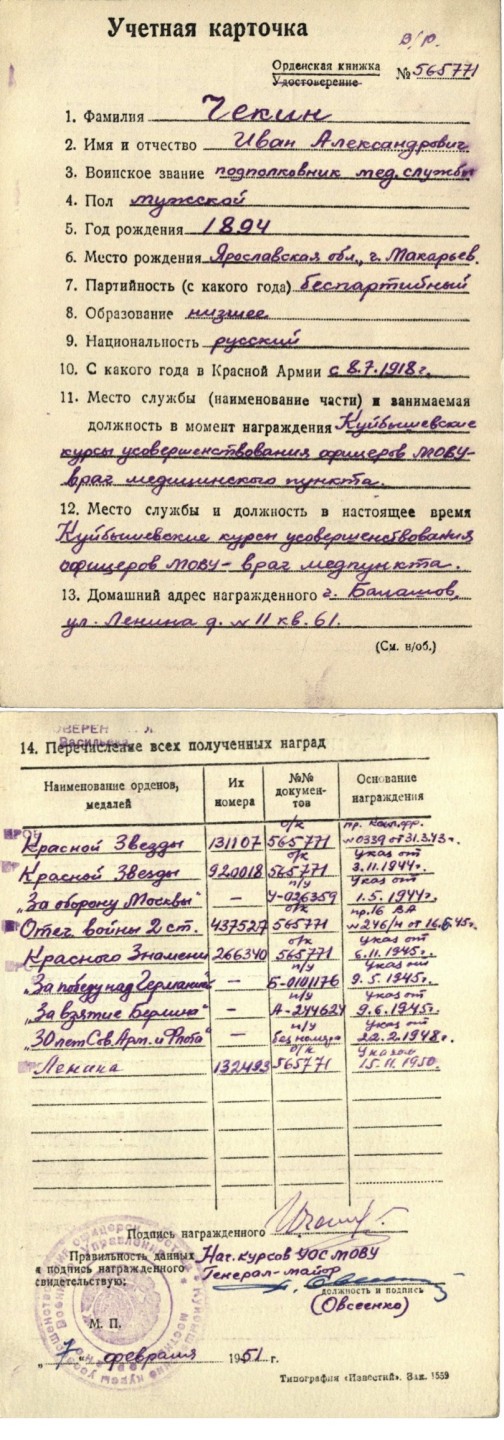 Учетная карточка
в/р.
Орденская книжка
Удостоверение № 565771
1. Фамилия Чекин
2. Имя и отчество Иван Александрович
3. Воинское звание подполковник мед. службы
4. Пол мужской
5. Год рождения 1894
6. Место рождения Ярославская обл., г. Макарьев.
7. Партийность (с какого года) беспартийный
8. Образование низшее
9. Национальность русский
10. С какого года в Красной Армии с 8.7.1918 г.
11. Место службы (наименование части) и занимаемая
должность в момент награждения Куйбышевские
курсы усовершенствования офицеров МОВУ-
врач медицинского пункта.
12. Место службы и должность в настоящее время
Куйбышевские курсы усовершенствования
офицеров МОВУ- врач медпункта.
13. Домашний адрес награжденного г. Балашов,
ул. Ленина д. № 11 кв. 61.
(См. н/об.)
Васильева
14. Перечисление всех полученных наград
Наименование орденов, медалей Их номера №№ документов Основание награждения
Красной Звезды 131107 о/к 565771 №0339 от 31.3.43г.
Красной Звезды 920018 о/к 565771 Указ от 3.11.1944г.
„За оборону Москвы" — п/у У-026359 Указ от 1.5.1944г.
Отеч войны 2 ст. 437527 о/к 565771 пр. 16 ВА №246/н от 16.6.45г.
Красного Знамени 266340 о/к 565771 Указ от 6.11.1945г.
„За победу над Германией" — п/у Б-0101176 Указ от 9.5.1945г.
„За взятие Берлина" — п/у А-244624 Указ от 9.6.1945г.
„30 лет Сов. Арм. и Флота" — п/у без номера Указ от 22.2.1948г.
Ленина 132493 о/к 565771 Указом 15.11.1950.
Подпись награжденного
Правильность данных Нач. курсов УОС МОВУ
и подпись награжденного Генерал-майор
свидетельствую:
должность и подпись
(Овсеенко)
М. П.
„7" февраля 1951 г.
Типография «Известий». Зак. 1559